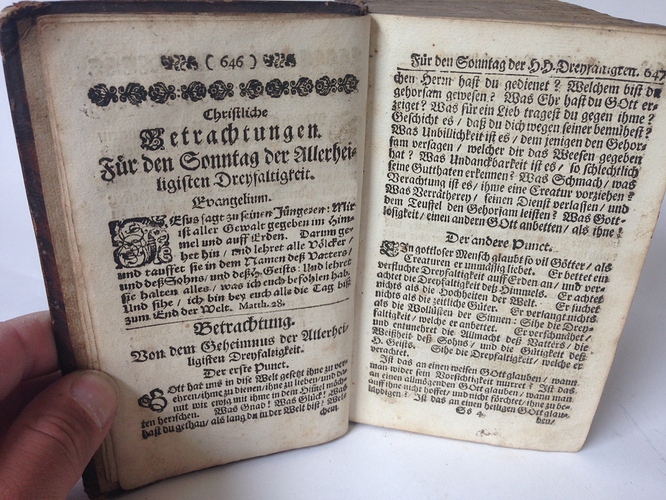 ( 646 )
Christliche
Betrachtungen.
Für den Sonntag der Allerhei-
ligisten Dreyfaltigkeit.
Evangelium.
JEsus sagt zu seinen Jüngeren: Mir
ist aller Gewalt gegeben im Him-
mel und auff Erden. Darum ge-
het hin / und lehret alle Völcker /
und tauffet sie in dem Namen deß Vatters /
und deß Sohns / und deß H. Geists: Und lehret
sie halten alles / was ich euch befohlen hab.
Und sihe / ich bin bey euch alle Tag biß
zum End der Welt. Matth. 28.
Betrachtung.
Von dem Geheimnus der Allerhei-
ligisten Dreyfaltigkeit.
Der erste Punct.
GOtt hat uns in dise Welt gesetzt ihne zu ver-
ehren / ihme zu dienen / ihne zu lieben / und
mit wie ewig mit ihme in dem Himel
ten herrschen. Was Gnad! Was Glück! Was
hast du gethan / als lang du in der Welt bist? Wel-
chem
Für den Sonntag der H H. Dreyfaltigkeit. 647
chen Herrn hast du gedienet? Welchem bist du
gehorsam gewesen? Was Ehr hast du GOtt er-
zeiget? Was für ein Lieb tragest du gegen ihme?
Geschicht es / daß du dich wegen seiner bemühest?
Was Unbillichkeit ist es / dem jenigen den Gehor-
sam versagen / welcher dir das Weesen gegeben
hat? Was Undanckbarkeit ist es / so schlechtlich
seine Gutthaten erkennen? Was Schmach / was
Verachtung ist es / ihme eine Creatur vorziehen?
Was Verrätherey / seinen Dienst verlassen / und
dem Teuffel den Gehorsam leisten? Was Gott-
losigkeit / einen andern GOtt anbetten / als ihne!
Der andere Punct.
EIn gottloser Mensch glaubt so vil Götter / als
Creaturen er unmässig liebet. Er bettet ein
verfluchte Dreyfaltigkeit auff Erden an / und ver-
achtet die Dreyfaltigkeit deß Himmels. Er achtet
nichts als die Hochheiten der Welt. Er suchet
nichts als die zeitliche Güter. Er verlangt nichts
als die Wollüsten der Sinnen: Sihe die Drey-
faltigkeit / welche er anbettet. Er verschmähet /
und entunehret die Allmacht deß Vatters / die
Weißheit deß Sohns / und die Gütigkeit deß
H. Geists. Sihe die Dreyfaltigkeit / welche er
verachtet.
Ist das an einen weisen GOtt glauben / wann
man wider sein Vorsichtigkeit murret? Ist das
an einen allmögenden GOtt glauben / wann man
auff ihne nicht hoffet / und nicht förchtet / ihne zu be-
laydigen? Ist das an einen heiligen GOtt glau-
Ss 4
ben /